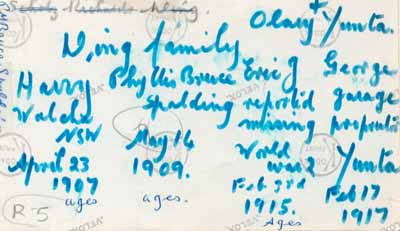 Olary + Yunta.
Wing family
Harry Phyllis Bruce Eric George
Walcha Spalding reported garage
NSW missing proprietor
April 23 May 14 World Yunta
1907 1909. war 2
ages ages. Feb 3rd Feb 17
1915. 1917
Ages
R5
VELOX